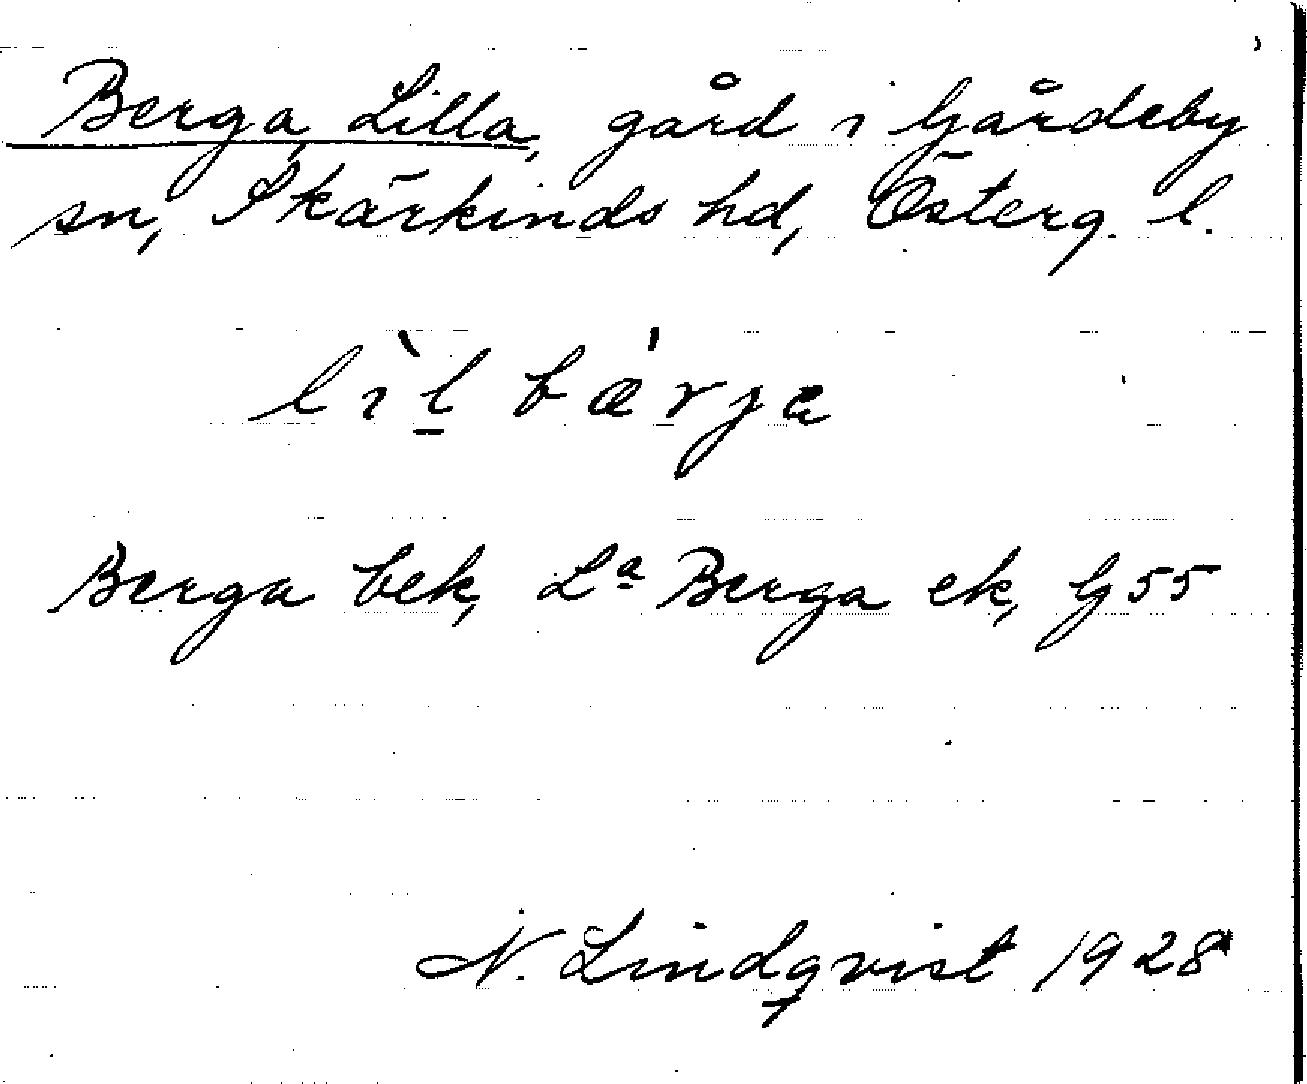 Berga, Lilla, gård i Gårdeby
sn, Skärkinds hd, Österg. l.
lìl bǽrja
Berga bek, Lª Berga ek, G 55
N. Lindqvist 1928